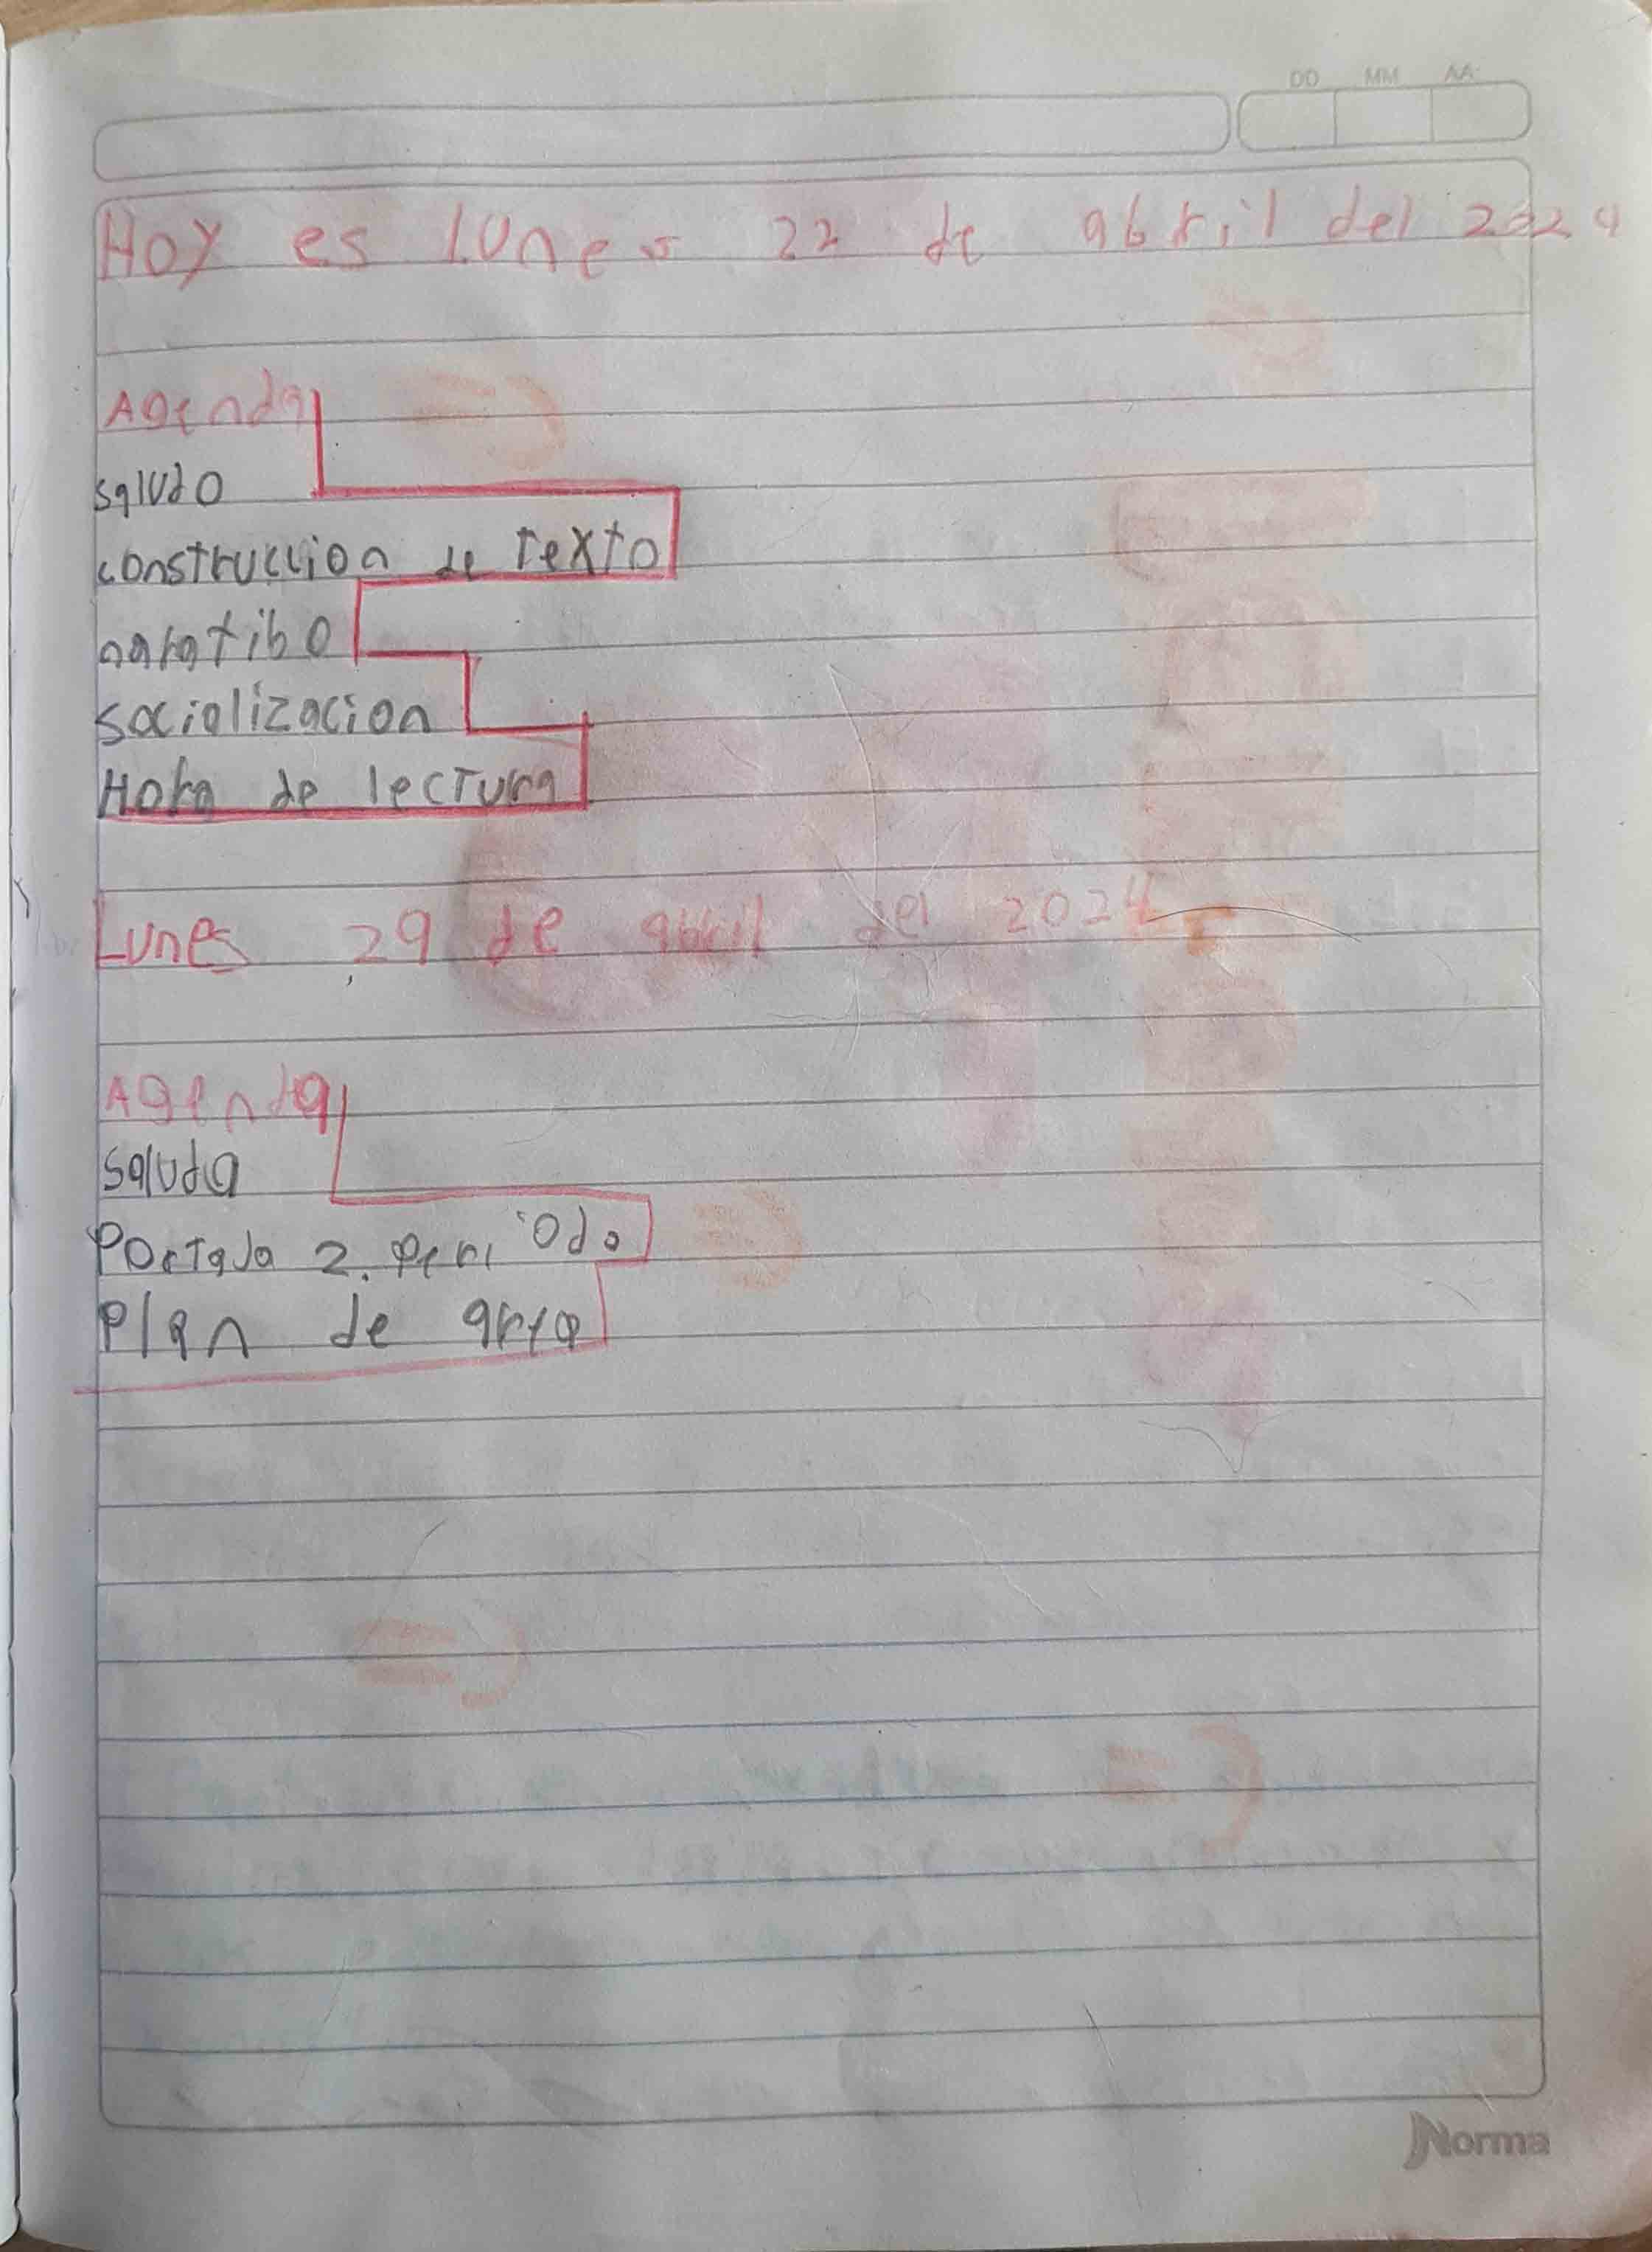 DD MM AA
Hoy es lunes 22 de abril del 2024
Agenda
saludo
construccion de texto
naratibo
socializacion
Hora de lectura
Lunes 29 de abril del 2024
Agenda
saluda
Portada 2. periodo
Plan de
Norma